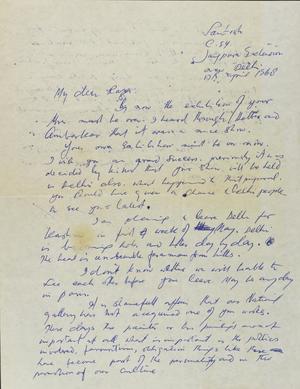 Santosh
C. 54
Jangpura Extension
New Delhi
April 1968
My dear Raza
By now the exhibition of your
must be over. I heard through
and
that it was a nice show.
Your own Exhibition might be on now.
I wish you grand success. Previously it was
decided by that your show will be held
in Delhi also. What happened to that proposal.
You could have given a chance to Delhi people
to see your Latest.
I am planning to leave Delhi for
in first week of May. Delhi
is becoming hot and hotter day by day.
The heat is unbearable for a man from hills.
I don't know whether we will be able to
see each other before you leave. May be any day
in
It is shameful affair that our National
gallery has not acquired one of your works.
These days the painter or his paintings are not
important at all. What is important is the politics
involved, favouritism, obligation things like these
have become part of the personality and in the
promotion of our culture